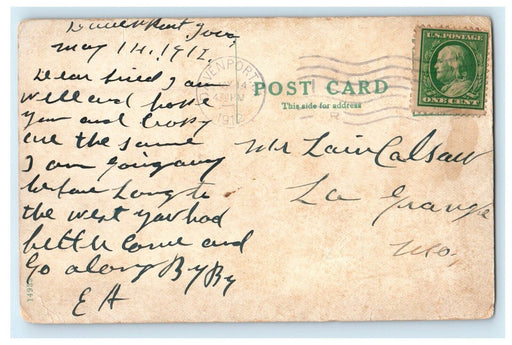 Davenport Iowa
May 14, 1912.
Dear frind I am
well and hope
you and
are the same
I am going away
before long to
the west you had
better come and
go along By By
E A
DAVENPORT
4 30 PM
1912
POST CARD
This side for address
U.S. POSTAGE
ONE CENT
Mr Lain Calsaw
La Grange
Mo,